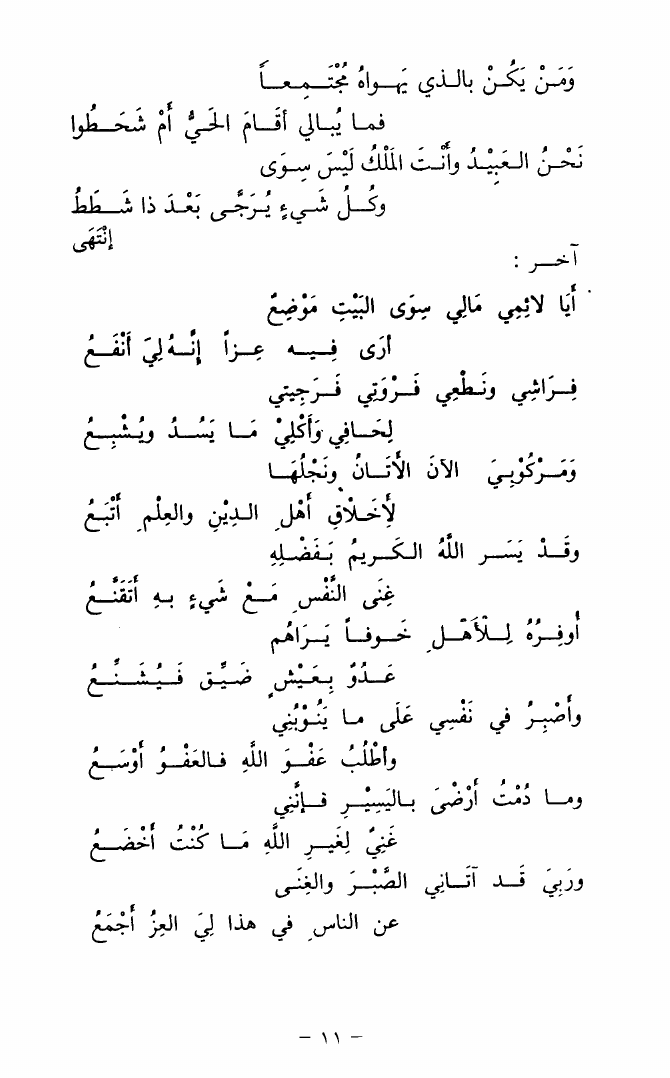 وَمَنْ يَكُنْ بالذي يَهواهُ مُجْتَمِعاً
فما يُبالي أقَامَ الحَيُّ أَمْ شَحَطُوا
نَحْنُ العَبِيْدُ وأَنْتَ المَلْكُ لَيْسَ سِوَى
وكُلُ شَيءٍ يُرَجَّى بَعْدَ ذا شَطَطُ
إنْتَهَى
آخر :
أَيَا لائِمِي مَالِي سِوَى البَيْتِ مَوْضِعٌ
أرَى فِيه عِزاً إنَّهُ لِيَ أَنْفَعُ
فِرَاشِي ونَطْعِي فَرْوَتِي فَرَجِيتي
لِحَافِي وَأَكْلِيْ مَا يَسُدُ ويُشْبِعُ
وَمَرْكُوبِيَ الآنَ الأَتَانُ ونَجْلُهَا
لِأخْلَاقِ أَهْلِ الدِيْنِ والعِلْمِ أَتْبَعُ
وقَدْ يَسَر اللَّهُ الكَرِيمُ بَفَضْلِهِ
غِنَى النَّفْسِ مَعْ شَيءٍ بِهِ أَتَقَنَّعُ
أُوفِرُهُ لِلْأَهْلِ خَوفاً يَرَاهُم
عَدُوٌ بِعَيْشٍ ضَيِّق فَيُشَنِّعُ
وأَصْبِرُ في نَفْسِي عَلَى ما يَنُوْبُنِي
وأطْلُبُ عَفْوَ اللَّهِ فالعَفْوُ أوْسَعُ
وما دُمْتُ أَرْضَىْ باليَسِيْرِ فإنَّنِي
غَنِيٌ لِغَيرِ اللَّهِ مَا كُنْتُ أَخْضَعُ
ورَبِيَ قَد آتَانِي الصَّبْرَ والغِنَى
عن الناسِ في هذا لِيَ العِزُ أَجْمَعُ
– ١١ –